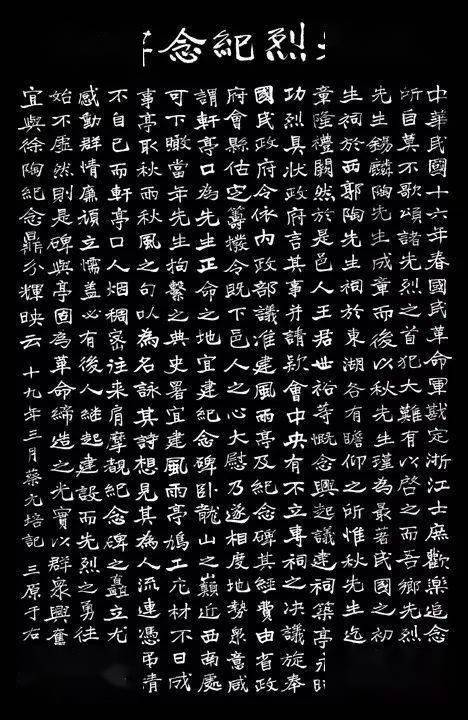 烈紀念
中華民國十六年春國民革命軍戡定浙江士庶歡樂追念
所自莫不歌頌諸先烈之首犯大難有以啓之而吾鄉先烈
先生錫麟陶先生成章而後以秋先生瑾為最著民國之初
生祠於西郭陶先生祠於東湖各有瞻仰之所惟秋先生迄
章陰禮闕然於是邑人王君世裕等慨念興起議建祠築亭永昭
功烈具狀政府言其事并請款會中央有不立專祠之決議旋奉
國民政府令依內政部議准建風雨亭及紀念碑其經費由省政
府會縣估定籌撥令既下邑人之心大慰乃遂相度地勢眾意咸
謂軒亭口為先生正命之地宜建紀念碑臥龍山之巔近西南處
可下瞰當年先生拘繫之典史署宜建風雨亭鳩工庀材不日成
事亭取秋雨秋風之句以為名詠其詩想見其為人流連憑弔情
不自已而軒亭口人烟稠密往來肩摩覩紀念碑之矗立尤
感動群情廉頑立懦蓋必有後人繼起建設而先烈之勇往
始不虛然則是碑與亭固為革命締造之光實以群眾興奮
宜與徐陶紀念鼎分輝映云 十九年三月蔡元培記 三原于右